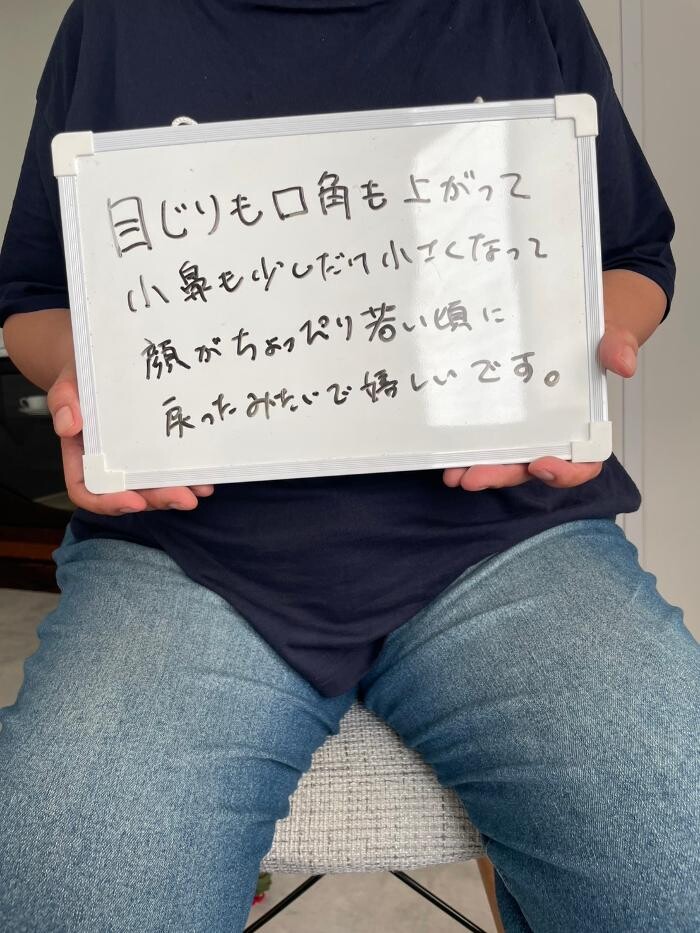 目じりも口角も上がって
小鼻も少しだけ小さくなって
顔がちょっぴり若い頃に
戻ったみたいで嬉しいです。